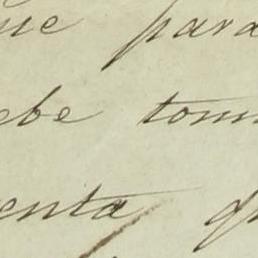 ue para
ebe tom
enta q